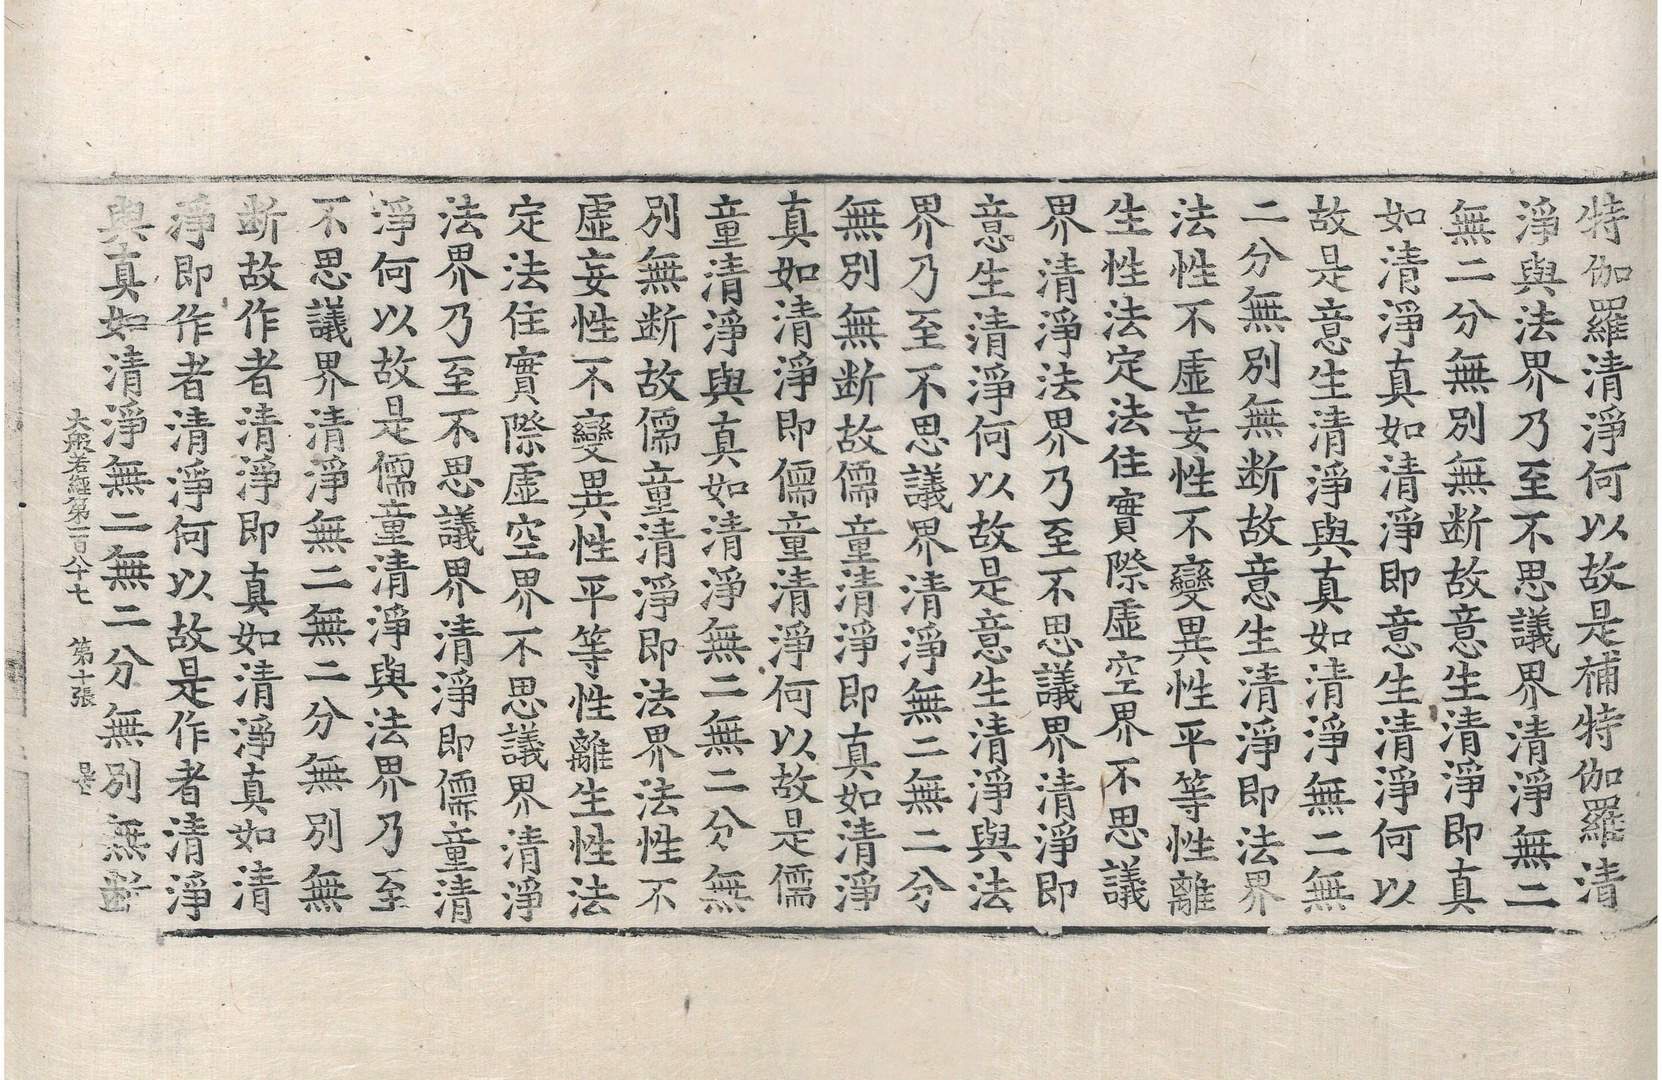 特伽羅清淨何以故是補特伽羅清
淨與法界乃至不思議界清淨無二
無二分無別無断故意生清淨即真
如清淨真如清淨即意生清淨何以
故是意生清淨與真如清淨無二無
二分無別無断故意生清淨即法界
法性不虛妄性不變異性平等性離
生性法定法住實際虛空界不思議
界清淨法界乃至不思議界清淨即
意生清淨何以故是意生清淨與法
界乃至不思議界清淨無二無二分
無別無断故儒童清淨即真如清淨
真如清淨即儒童清淨何以故是儒
童清淨與真如清淨無二無二分無
別無断故儒童清淨即法界法性不
虛妄性不變異性平等性離生性法
定法住實際虛空界不思議界清淨
法界乃至不思議界清淨即儒童清
淨何以故是儒童清淨與法界乃至
不思議界清淨無二無二分無別無
断故作者清淨即真如清淨真如清
淨即作者清淨何以故是作者清淨
與真如清淨無二無二分無別無断
大般若經第一百八十七 第十張